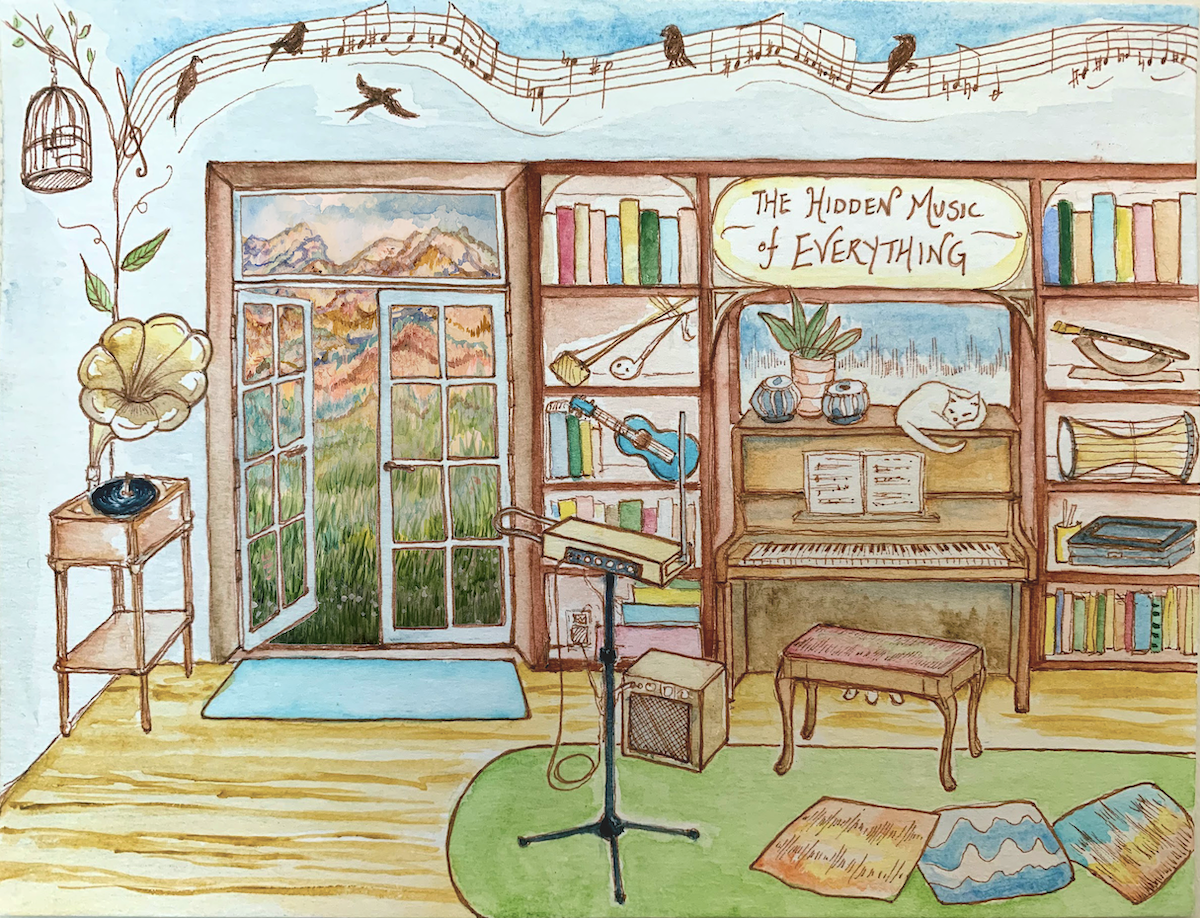 THE HIDDEN MUSIC
of EVERYTHING